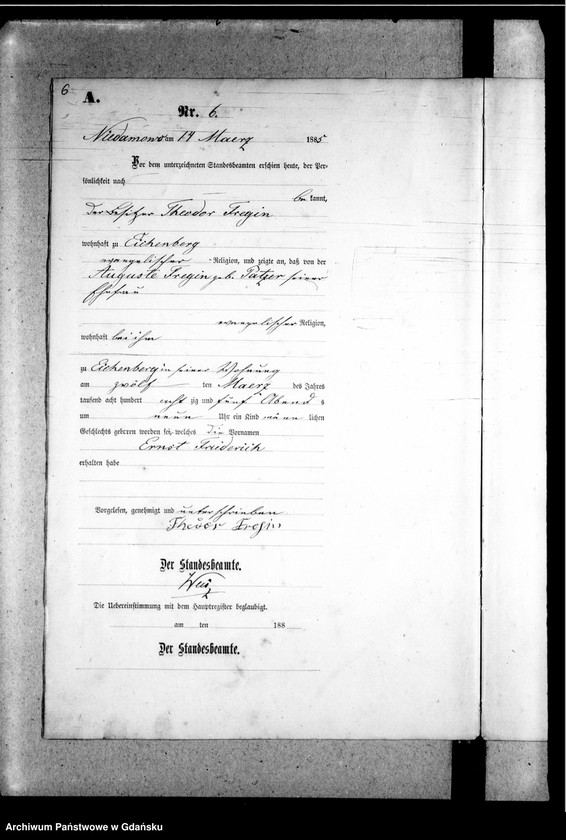 6
A.
Nr. 6.
Niedamowo am 14 Maerz 1885
Vor dem unterzeichneten Standesbeamten erschien heute, der Per-
sönlichkeit nach
be kannt,
der Besitzer Theodor Fregin
wohnhaft zu Eichenberg
evangelischer Religion, und zeigte an, daß von der
Auguste Fregin geb. Patzer seiner
Ehefrau
evangelischer Religion,
wohnhaft bei ihm
zu Eichenberg in seiner Wohnung
am zwölf ten Maerz des Jahres
tausend acht hundert acht zig und fünf Abend s
um neun Uhr ein Kind männ lichen
Geschlechts geboren worden sei, welches die Vornamen
Ernst Friederich
erhalten habe
Vorgelesen, genehmigt und unterschrieben
Theodor Fregin
Der Standesbeamte.
Die Uebereinstimmung mit dem Hauptregister beglaubigt.
am ten 188
Der Standesbeamte.
Archiwum Państwowe w Gdańsku